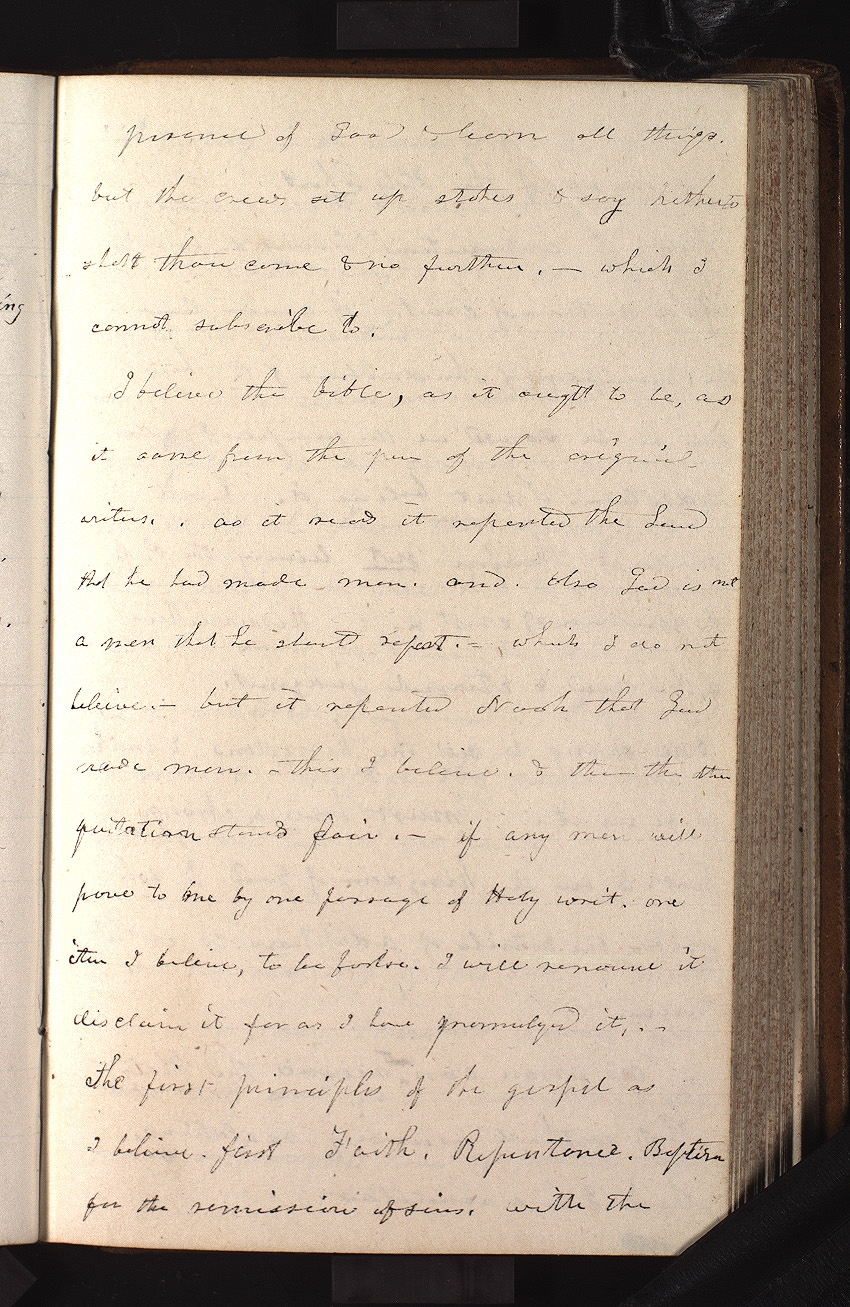 presence of God & learn all things.
but the creeds set up stakes & say hitherto
shalt thou come & no further. — which I
cannot subscribe to.
I believe the bible, as it ought to be, as
it came from the pen of the original
writers. . as it read it repented the Lord
that he had made man. and. also God is not
a man that he should repent. = which I do not
beleive. — but it repented Noah that God
made man. — this I believe. & then the other
quotation stands fair. — if any man will
prove to me by one passage of Holy writ. one
item I believe, to be false. I will renounce it
disclaim it far as I have promulged it. . -
The first principles of the gospel as
I believe. first Faith. Repentance. Baptism
for the remission of sins. with the
ing